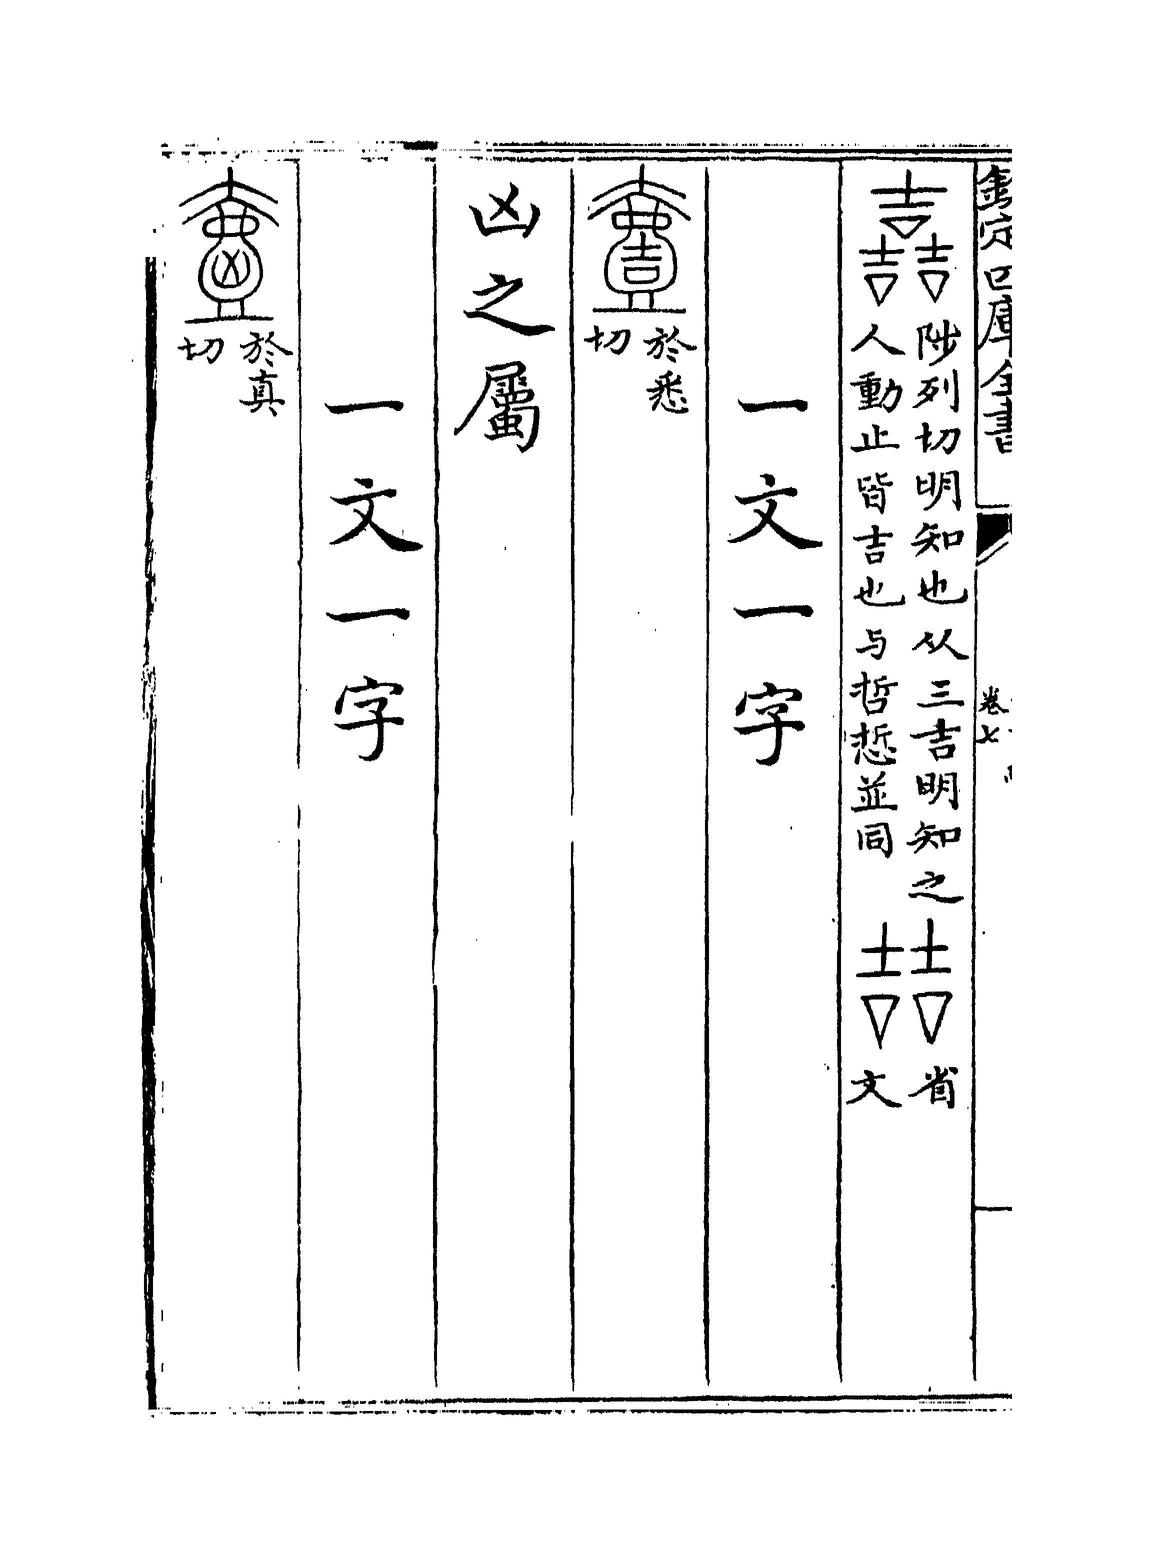 欽定四庫全書 卷七
嚞 陟列切明知也从三吉明知之
人動止皆吉也与哲悊並同
喆 省
文
一文一字
壹 於悉
切
凶之屬
一文一字
於真
切